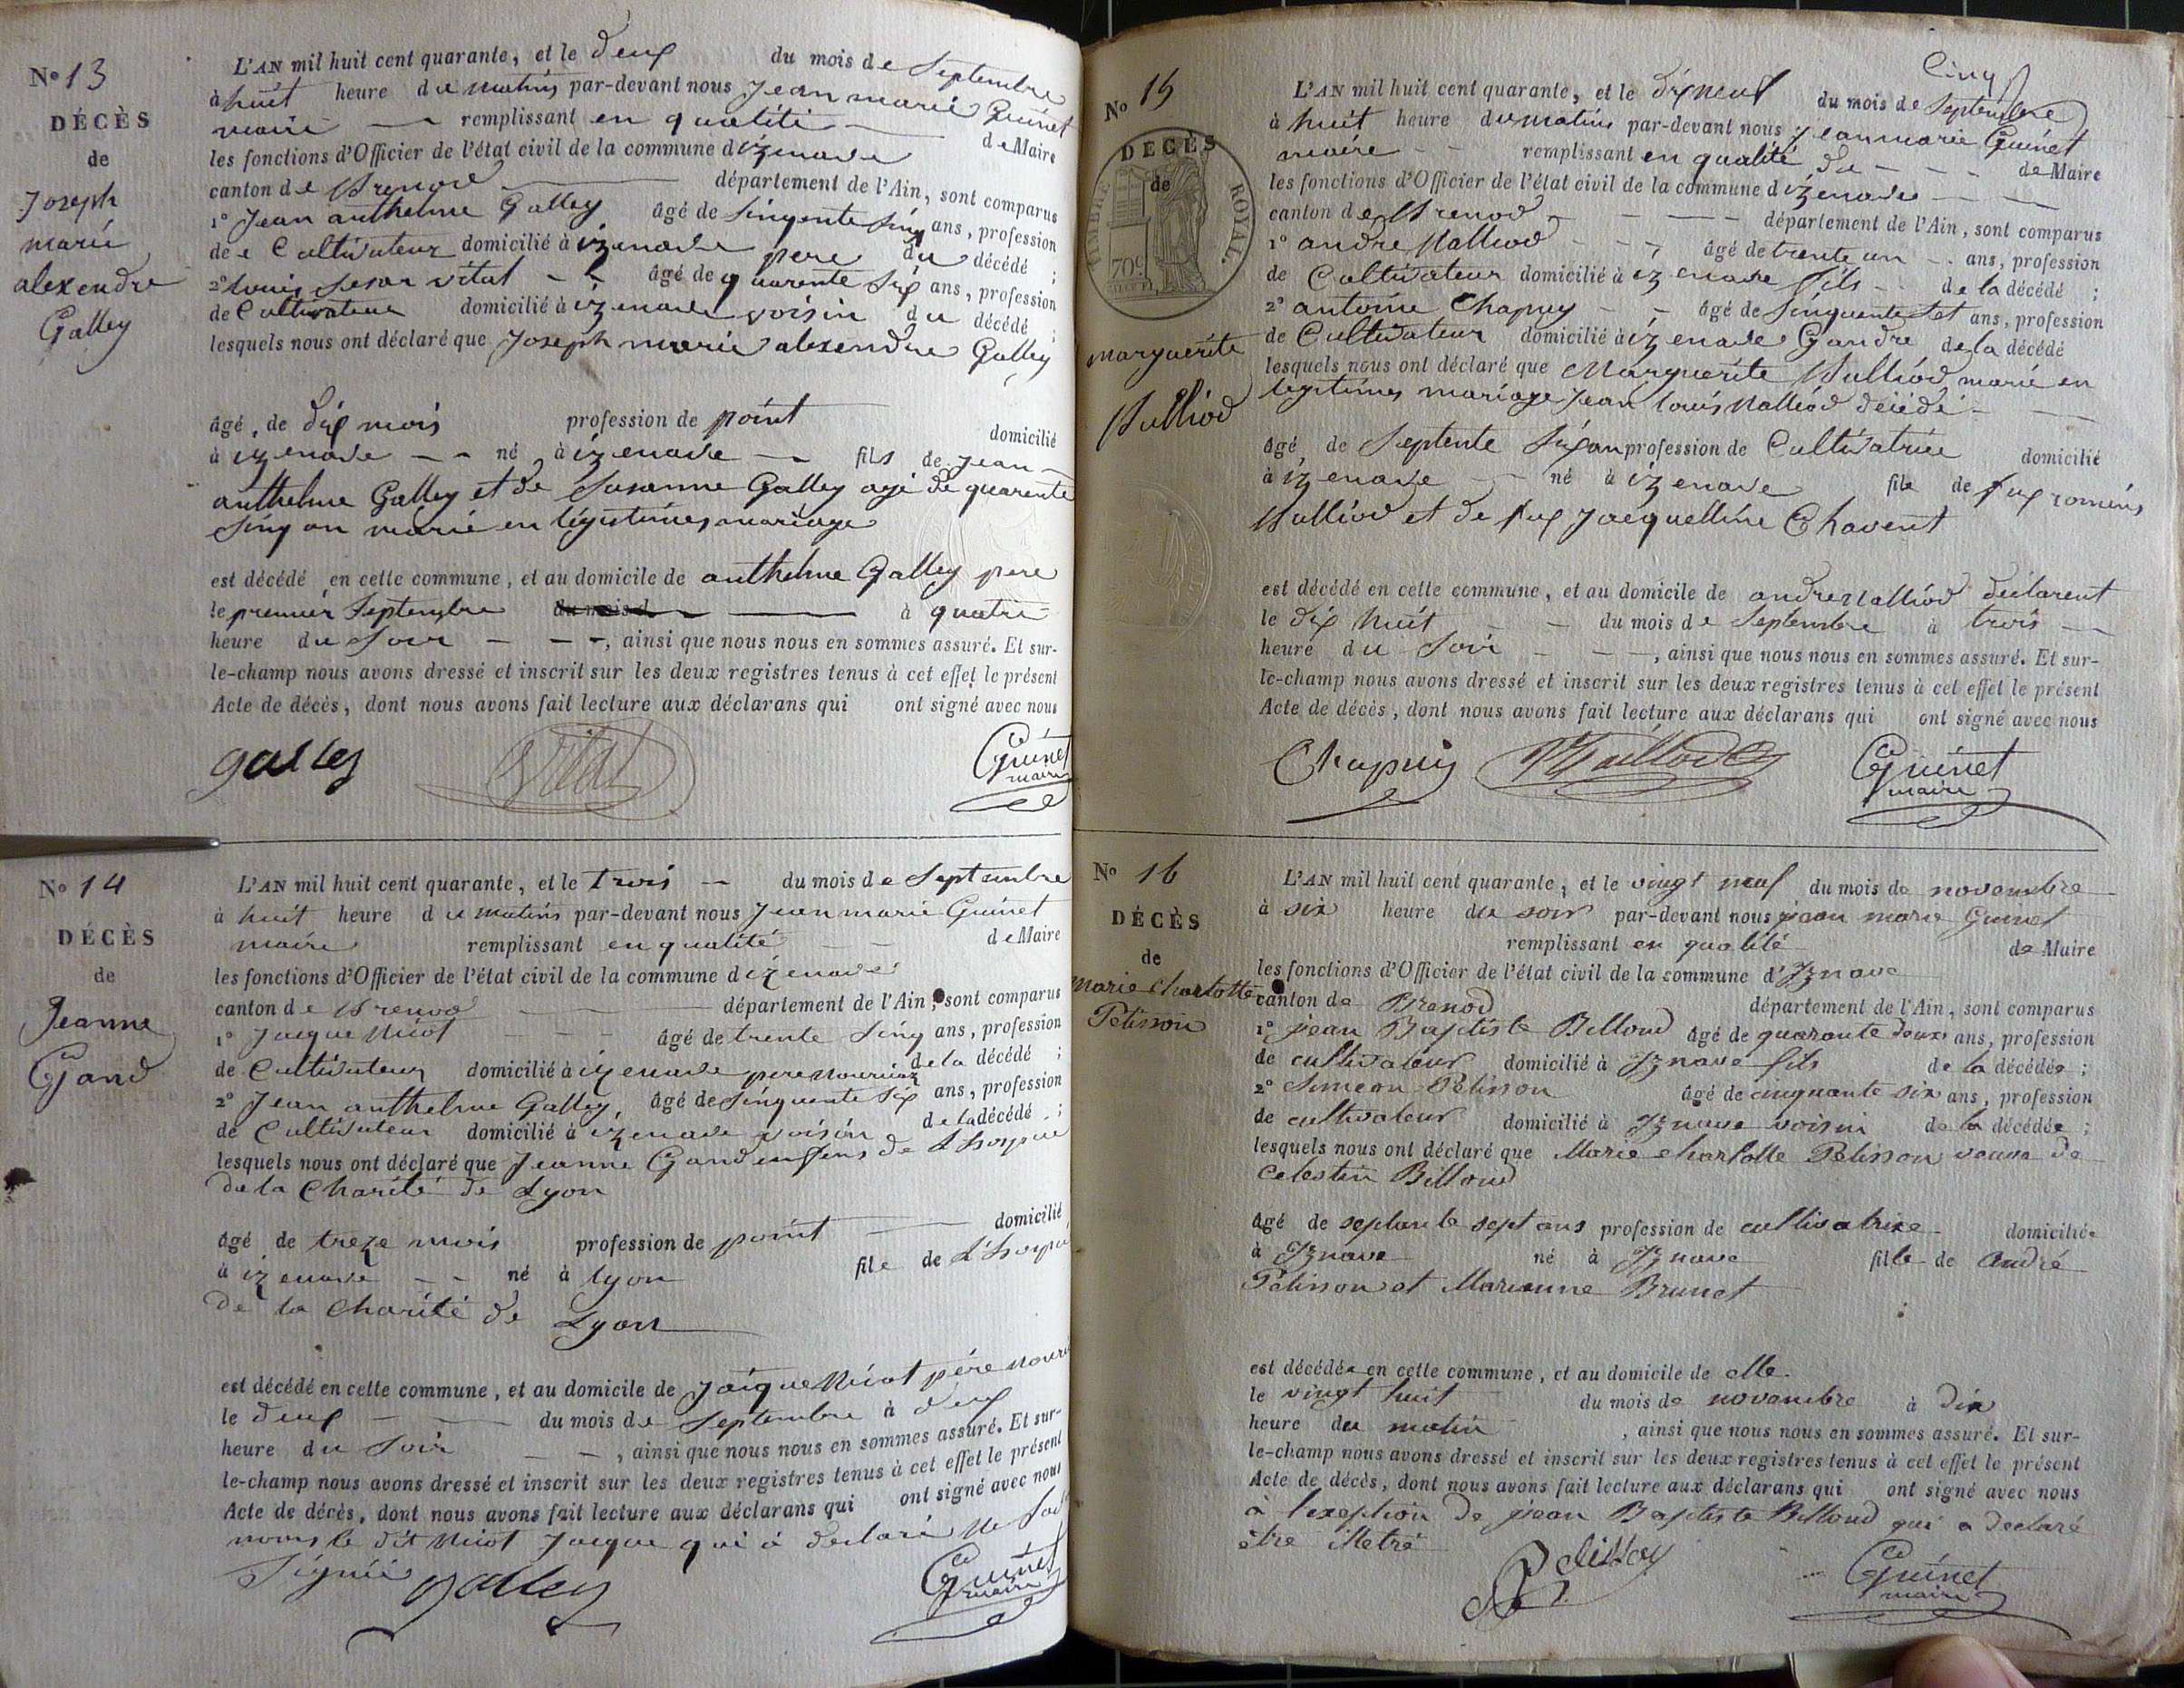 N° 13
DÉCÈS
de
Joseph
marie
alexendre
Galley
L'AN mil huit cent quarante, et le deux du mois de Septembre
à huit heure du matin par-devant nous Jean marie Guinet
maire remplissant en qualité de Maire
les fonctions d'Officier de l'état civil de la commune d izenave
canton de Brenod département de l'Ain, sont comparus
1° Jean anthelme Galley âgé de sinquente sinq ans, profession
de Cultivateur domicilié à izenave pere du décédé ;
2° Louis Sesar vital âgé de quarente six ans, profession
de Cultivateur domicilié à izenave voisin du décédé ;
lesquels nous ont déclaré que Joseph marie alexendre Galley
âgé, de dix mois profession de point domicilié
à izenave né à izenave fils de Jean
anthelme Galley et de Susanne Galley agé de quarente
sinq an marié en légitimes mariage
est décédé en cette commune, et au domicile de anthelme Galley pere
le premier Septembre du mois d à quatre
heure du Soir , ainsi que nous nous en sommes assuré. Et sur-
le-champ nous avons dressé et inscrit sur les deux registres tenus à cet effet le présent
Acte de décès, dont nous avons fait lecture aux déclarans qui ont signé avec nous
galley Vital Guinet
maire
N° 14
DÉCÈS
de
Jeanne
Gand
L'AN mil huit cent quarante, et le trois du mois de Septembre
à huit heure du matin par-devant nous Jean marie Guinet
maire remplissant en qualité de Maire
les fonctions d'Officier de l'état civil de la commune d izenave
canton de Brenod département de l'Ain, sont comparus
1° Jacque Nicot âgé de trente sinq ans, profession
de Cultivateur domicilié à izenave pere de la décédé ;
2° Jean anthelme Galley, âgé de sinquente six ans, profession
de Cultivateur domicilié à izenave voisin de la décédé ;
lesquels nous ont déclaré que Jeanne Gand de
de la Charité de Lyon
âgé de treze mois profession de point domicilié
à izenave né à lyon file de
de la charité de Lyon
est décédé en cette commune, et au domicile de Jacque Nicot pére
le deux du mois de Septembre à deux
heure du Soir , ainsi que nous nous en sommes assuré. Et sur-
le-champ nous avons dressé et inscrit sur les deux registres tenus à cet effet le présent
Acte de décès, dont nous avons fait lecture aux déclarans qui ont signé avec nous
le dit Nicot Jacque qui à declaré ne
Signée galley Guinet
maire
N° 15
DÉCÈS
de
TIMBRE ROYAL.
70c
marguerite
Valliod
Cinq
L'AN mil huit cent quarante, et le dix neuf du mois de Septembre
à huit heure du matin par-devant nous Jean marie Guinet
maire remplissant en qualité de de Maire
les fonctions d'Officier de l'état civil de la commune d izenave
canton de Brenod département de l'Ain, sont comparus
1° andre Valliod âgé de trente un ans, profession
de Cultivateur domicilié à izenave fils de la décédé ;
2° antoine Chapuy âgé de sinquente set ans, profession
de Cultivateur domicilié à izenave Gandre de la décédé
lesquels nous ont déclaré que Marguerite Valliod, marié en
legitimes mariage Jean Louis Valliod décédé
âgé de Septente six an profession de Cultivatrice domicilié
à izenave né à izenave file de fux romins
Valliod et de fux Jacquelline Chavent
est décédé en cette commune, et au domicile de andre Valliod déclarent
le dix huit du mois de Septembre à trois
heure du Soir , ainsi que nous nous en sommes assuré. Et sur-
le-champ nous avons dressé et inscrit sur les deux registres tenus à cet effet le présent
Acte de décès, dont nous avons fait lecture aux déclarans qui ont signé avec nous
Chapuy Valliod Guinet
maire
N° 16
DÉCÈS
de
Marie charlotte
Pelisson
L'AN mil huit cent quarante, et le vingt neuf du mois de novembre
à six heure du soir par-devant nous jean marie Guinet
remplissant en qualité de Maire
les fonctions d'Officier de l'état civil de la commune d'Iznave
canton de Brenod département de l'Ain, sont comparus
1° jean Baptiste Billoud âgé de quarante deux ans, profession
de cultivateur domicilié à Iznave fils de la décédée ;
2° Simeon Pelisson âgé de cinquante six ans, profession
de cultivateur domicilié à Iznave voisin de la décédée ;
lesquels nous ont déclaré que Marie charlotte Pelisson veuve de
Celestin Billoud
âgé de septante sept ans profession de cultivatrixe domiciliée
à Iznave né à Iznave fille de André
Pelisson et Marianne Brunet
est décédée en cette commune, et au domicile de elle
le vingt huit du mois de novembre à dix
heure du matin , ainsi que nous nous en sommes assuré. Et sur-
le-champ nous avons dressé et inscrit sur les deux registres tenus à cet effet le présent
Acte de décès, dont nous avons fait lecture aux déclarans qui ont signé avec nous
à l'exeption de jean Baptiste Billoud qui a declaré
être illetré
Pelisson Guinet
maire